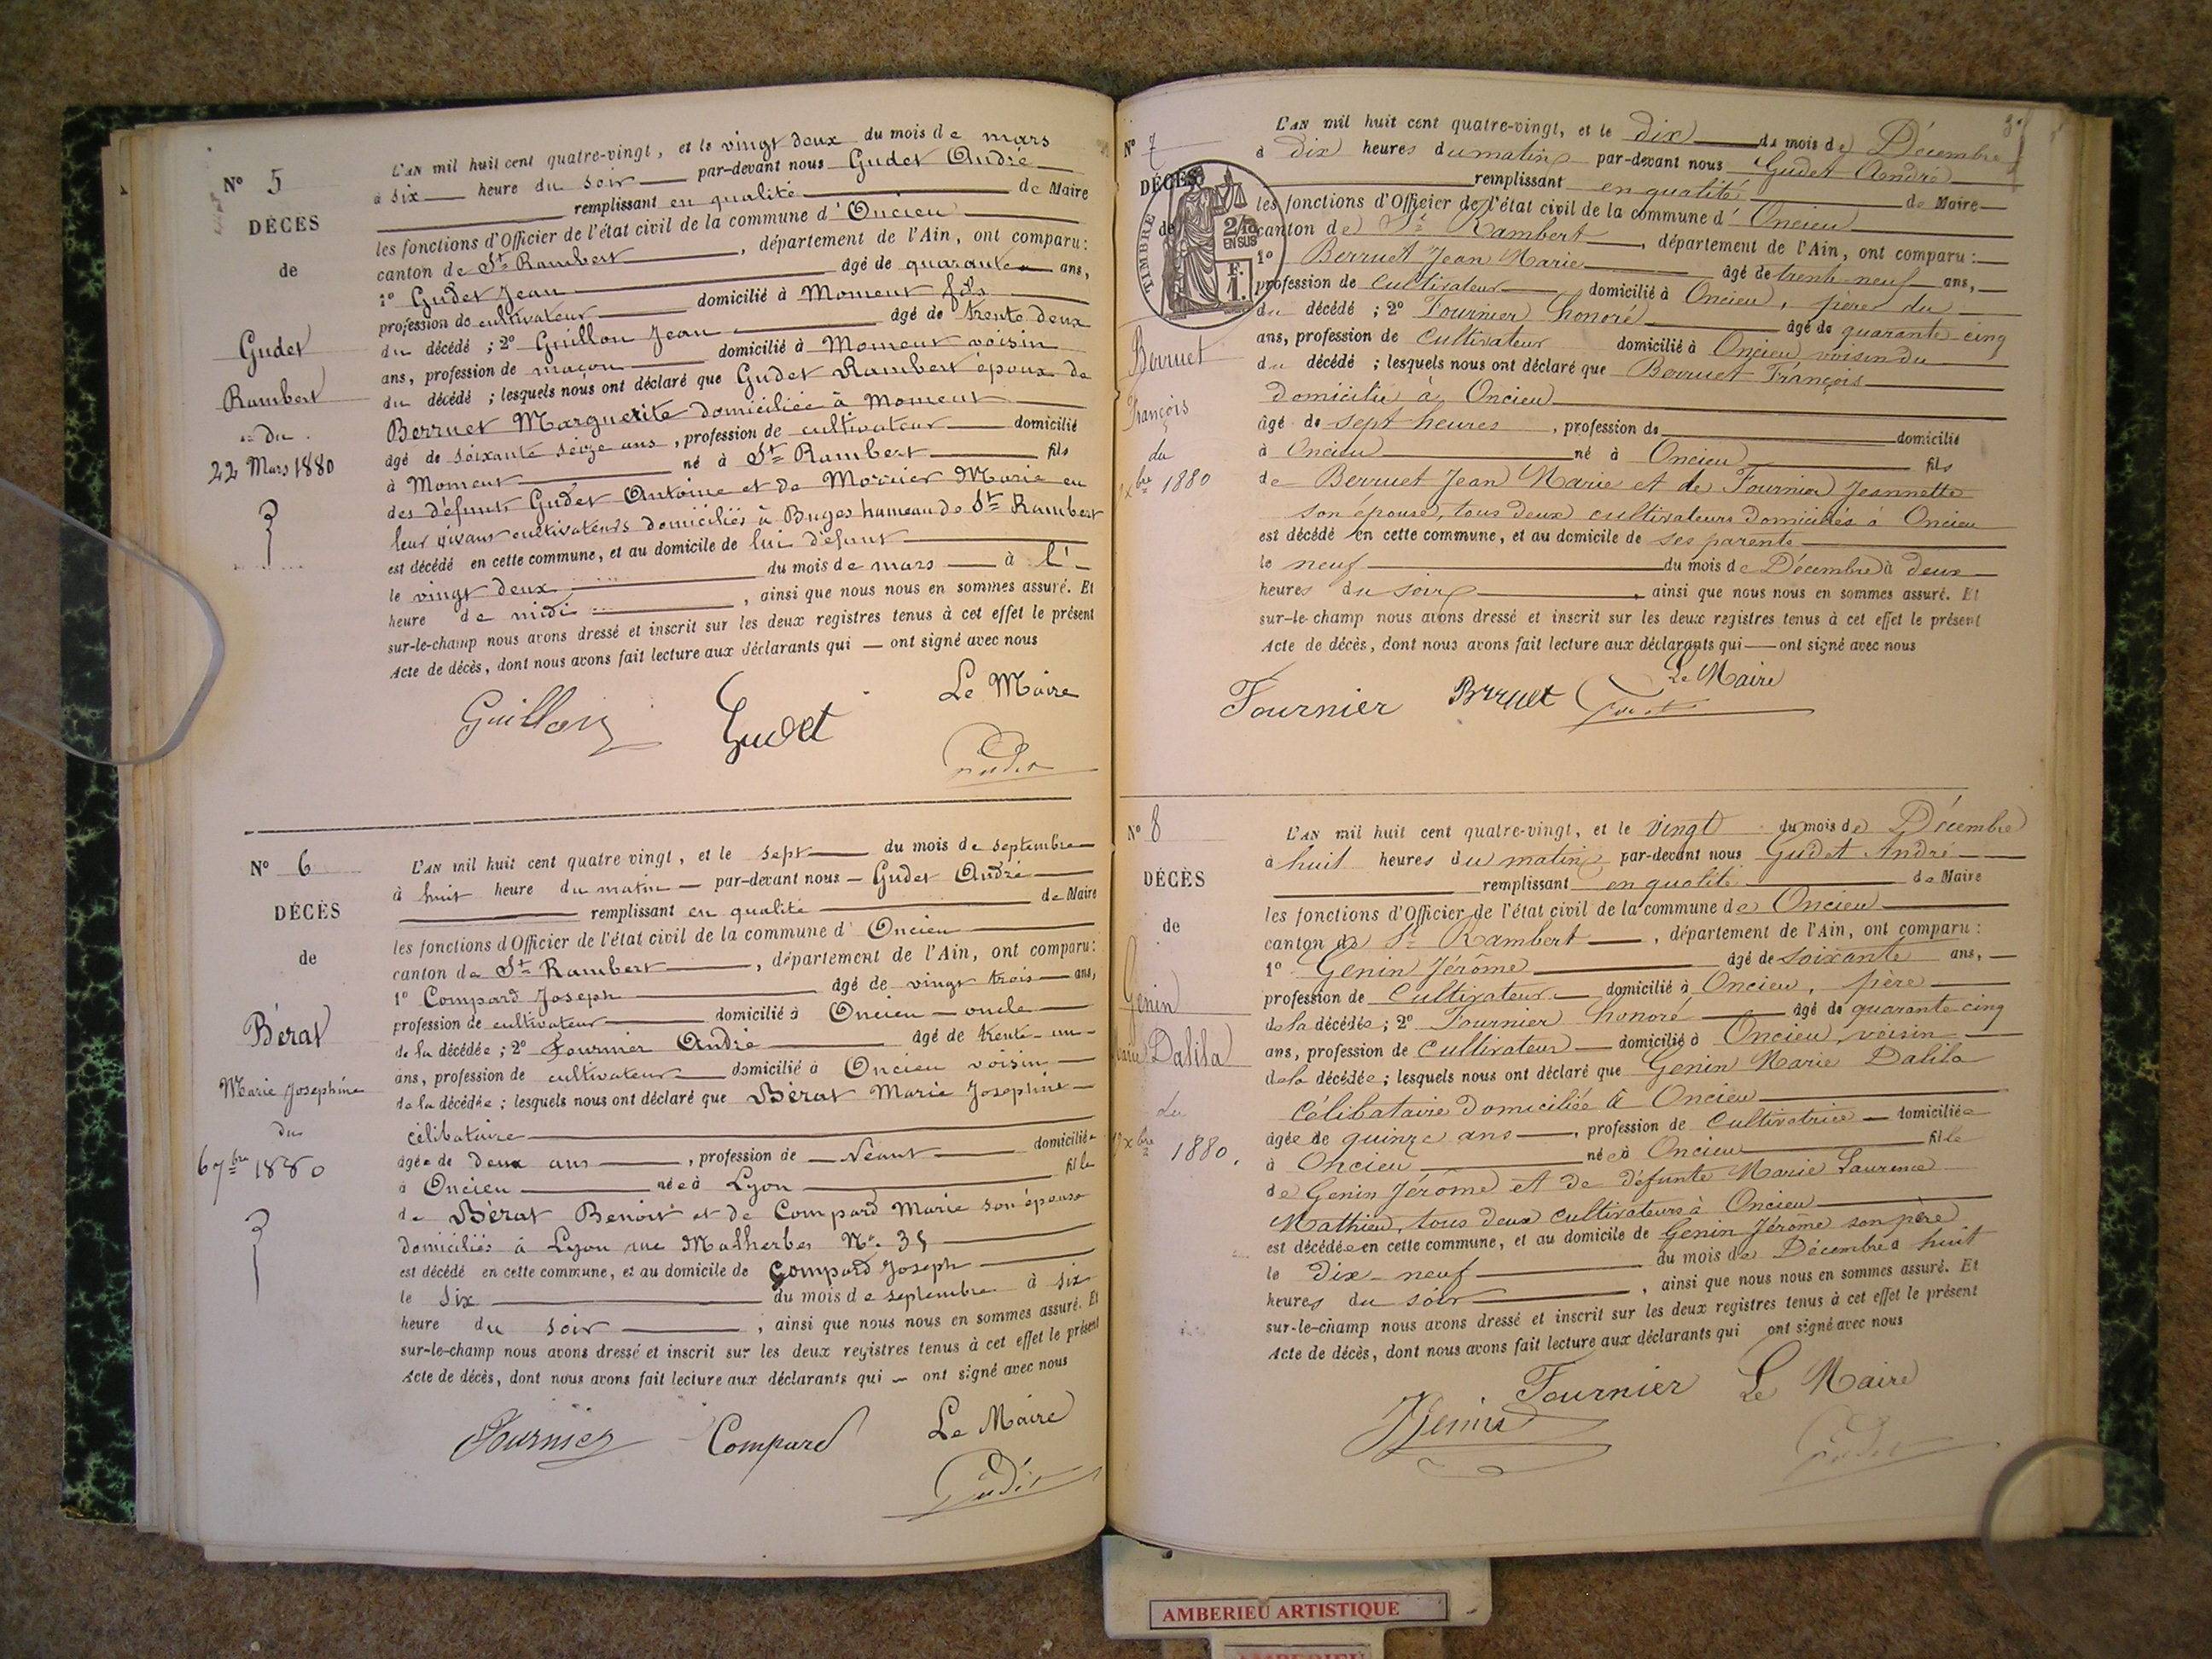 N° 5
DÉCES
de
Gudet
Rambert
du
22 Mars 1880
L'AN mil huit cent quatre-vingt, et le vingt deux du mois de mars
à six heure du soir par-devant nous Gudet André
remplissant en qualité de Maire
les fonctions d'Officier de l'état civil de la commune d' Oncieu
canton de St Rambert, département de l'Ain, ont comparu:
1° Gudet Jean âgé de quarante ans,
profession de cultivateur domicilié à Moment fils
du décédé ; 2° Guillon Jean âgé de trente deux
ans, profession de maçon domicilié à Moment voisin
du décédé ; lesquels nous ont déclaré que Gudet Rambert époux de
Berruet Marguerite domiciliée à Moment
âgé de soixante seize ans, profession de cultivateur domicilié
à Moment né à St Rambert fils
des défunts Gudet Antoine et de Marie en
leur vivant cultivateurs domiciliés à Buges hameau de St Rambert
est décédé en cette commune, et au domicile de lui défunt
le vingt deux du mois de mars à l'
heure de midi, ainsi que nous nous en sommes assuré. Et
sur-le-champ nous avons dressé et inscrit sur les deux registres tenus à cet effet le présent
Acte de décès, dont nous avons fait lecture aux déclarants qui — ont signé avec nous
Le Maire
Guillon Gudet
Gudet
N° 6
DÉCÈS
de
Bérat
Marie Josephine
du
6 7bre 1880
L'AN mil huit cent quatre vingt, et le sept du mois de septembre
à huit heure du matin — par-devant nous — Gudet André
remplissant en qualité de Maire
les fonctions d'Officier de l'état civil de la commune d' Oncieu
canton de St Rambert, département de l'Ain, ont comparu:
1° Compard Joseph âgé de vingt trois ans,
profession de cultivateur domicilié à Oncieu — oncle
de la décédée ; 2° Fournier André âgé de trente-un
ans, profession de cultivateur domicilié à Oncieu voisin
de la décédée ; lesquels nous ont déclaré que Bérat Marie Josephine
célibataire
âgée de deux ans, profession de Néant domiciliée
à Oncieu née à Lyon fille
de Bérat Benoit et de Compard Marie son épouse
domiciliés à Lyon rue Malherbes N°
est décédé en cette commune, et au domicile de Compard Joseph
le six du mois de septembre à six
heure du soir, ainsi que nous nous en sommes assuré. Et
sur-le-champ nous avons dressé et inscrit sur les deux registres tenus à cet effet le présent
Acte de décès, dont nous avons fait lecture aux déclarants qui — ont signé avec nous
Le Maire
Fournier Compard
Gudet
N° 7
DÉCÈS
de
TIMBRE
2/10 EN SUS
F. 1.
Berruet
François
du
xbre 1880
L'AN mil huit cent quatre-vingt, et le dix du mois de Décembre
à dix heures du matin par-devant nous Gudet André
remplissant en qualité de Maire
les fonctions d'Officier de l'état civil de la commune d' Oncieu
canton de St Rambert, département de l'Ain, ont comparu :
1° Berruet Jean Marie âgé de trente-neuf ans,
profession de cultivateur domicilié à Oncieu, père du
du décédé ; 2° Fournier honoré âgé de quarante-cinq
ans, profession de cultivateur domicilié à Oncieu voisin du
du décédé ; lesquels nous ont déclaré que Berruet François
domicilié à Oncieu
âgé de sept heures, profession de domicilié
à Oncieu né à Oncieu fils
de Berruet Jean Marie et de Fournier Jeannette
son épouse, tous deux cultivateurs domiciliés à Oncieu
est décédé en cette commune, et au domicile de ses parents
le neuf du mois de Décembre à deux
heures du soir, ainsi que nous nous en sommes assuré. Et
sur-le-champ nous avons dressé et inscrit sur les deux registres tenus à cet effet le présent
Acte de décès, dont nous avons fait lecture aux déclarants qui — ont signé avec nous
Le Maire
Fournier Berruet Gudet
N° 8
DÉCÈS
de
Genin
Dalila
du
xbre 1880.
L'AN mil huit cent quatre-vingt, et le vingt du mois de Décembre
à huit heures du matin par-devant nous Gudet André
remplissant en qualité de Maire
les fonctions d'Officier de l'état civil de la commune de Oncieu
canton de St Rambert, département de l'Ain, ont comparu :
1° Genin Jérôme âgé de soixante ans,
profession de Cultivateur domicilié à Oncieu, père
de la décédée ; 2° Fournier honoré âgé de quarante cinq
ans, profession de Cultivateur domicilié à Oncieu, voisin
de la décédée ; lesquels nous ont déclaré que Genin Marie Dalila
Célibataire domiciliée à Oncieu
âgée de quinze ans, profession de Cultivatrice domiciliée
à Oncieu née à Oncieu fille
de Genin Jérôme et de défunte Marie Laurence
Mathieu, tous deux cultivateurs à Oncieu
est décédée en cette commune, et au domicile de Genin Jérome son père
le dix-neuf du mois de Décembre à huit
heures du soir, ainsi que nous nous en sommes assuré. Et
sur-le-champ nous avons dressé et inscrit sur les deux registres tenus à cet effet le présent
Acte de décès, dont nous avons fait lecture aux déclarants qui ont signé avec nous
Fournier Le Maire
Genin
Gudet
AMBERIEU ARTISTIQUE
AMBERIEU